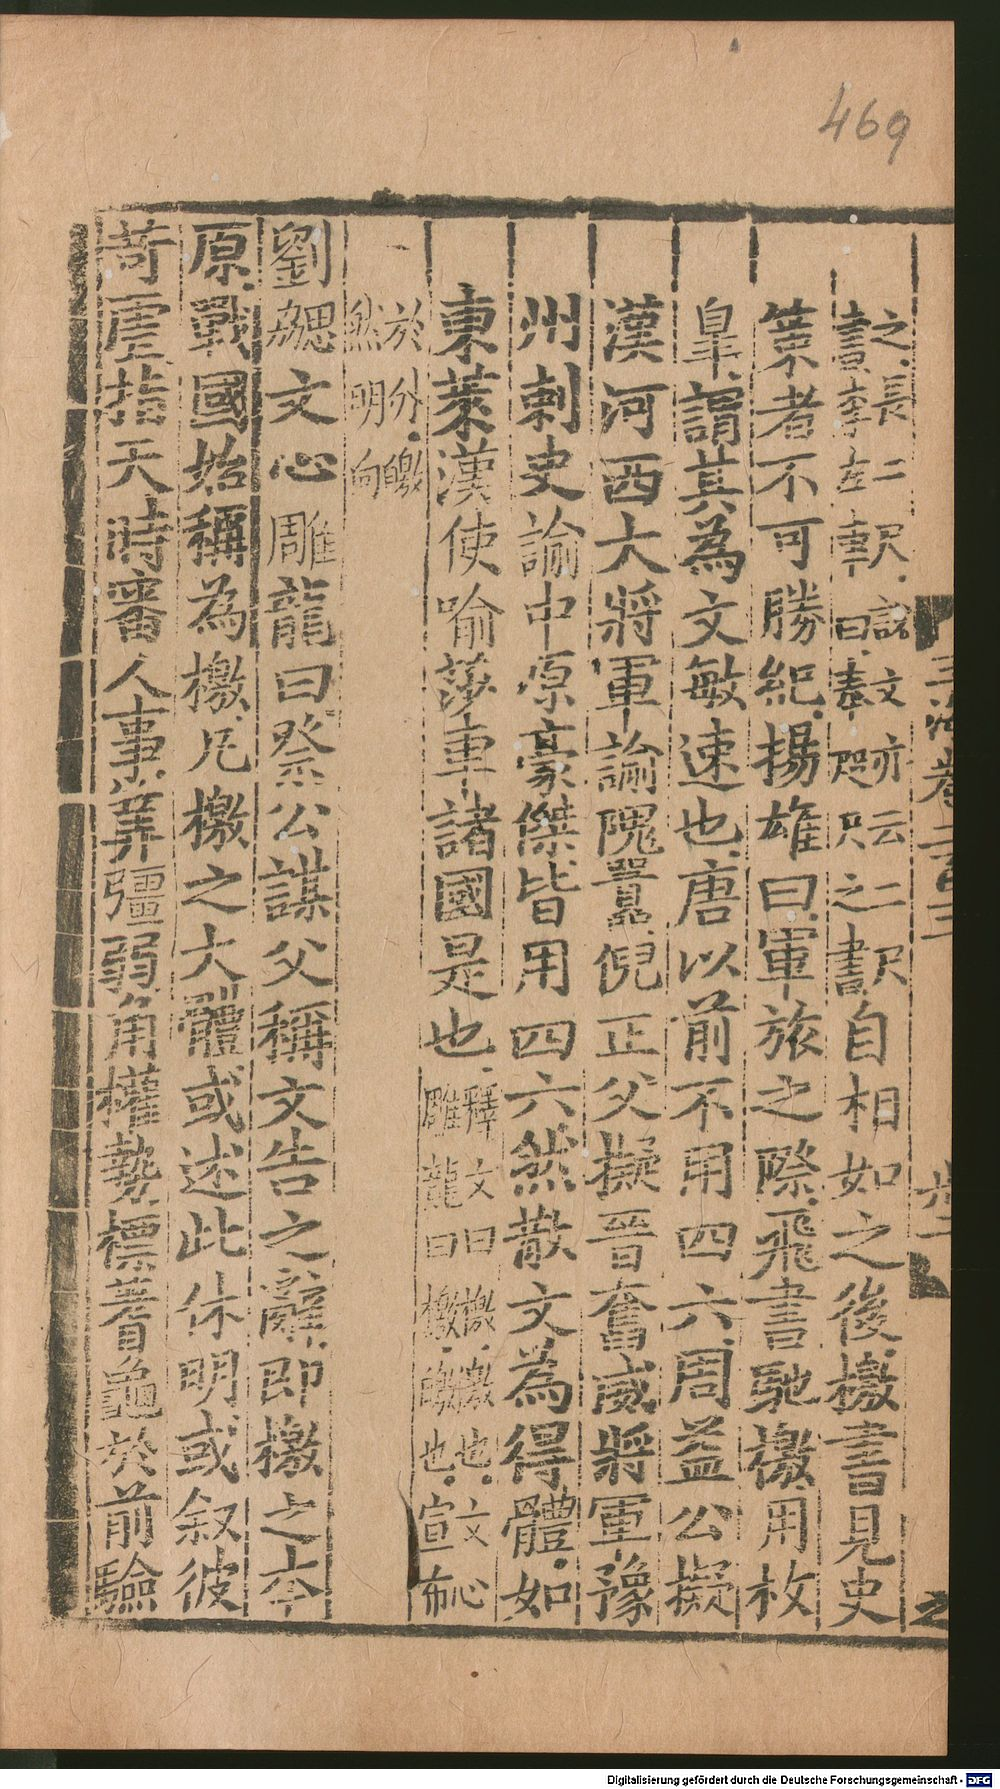 469
之長二尺說文亦云二尺
書李左車曰奉咫尺之書自相如之後檄書見史
策者不可勝紀揚雄曰軍旅之際飛書馳檄用枚
皐謂其為文敏速也唐以前不用四六周益公擬
漢河西大將軍諭隗囂倪正父擬晉奮威將軍豫
州刺史諭中原豪傑皆用四六然散文為得體如
東萊漢使喻莎車諸國是也釋文曰檄激也文心
雕龍曰檄皦也宣布
於外皦
然明向
劉勰文心雕龍曰祭公謀父稱文告之辭即檄之本
原戰國始稱為檄凡檄之大體或述此休明或叙彼
苛虐指天時審人事筭彊弱角權勢標蓍龜於前驗
Digitalisierung gefördert durch die Deutsche Forschungsgemeinschaft - DFG